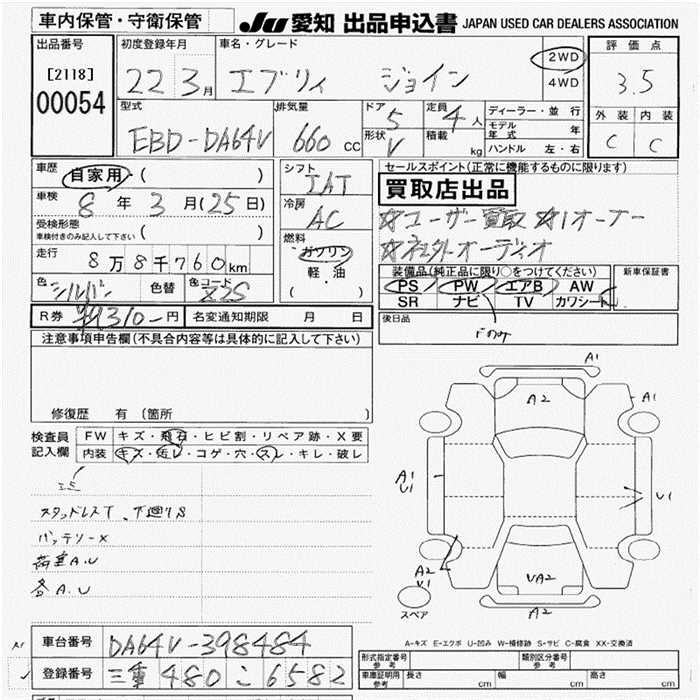 車内保管・守衛保管
JU 愛知 出品申込書 JAPAN USED CAR DEALERS ASSOCIATION
出品番号 初度登録年月 車名・グレード 評価点
[2118] 22 3月 エブリィ ジョイン 2WD 3.5
00054 4WD
型式 排気量 ドア 5 定員 4人 ディーラー・並行 外装 内装
EBD-DA64V 660 cc 形状 V 積載 kg モデル年式 年 C C
ハンドル 左・右
車歴 自家用・( ) シフト IAT セールスポイント(正常に機能するものに限ります)
車検 8年 3月(25日) 冷房 AC 買取店出品
受検形態 ☆ユーザー買取 ☆1オーナー
車検付きのみ記入して下さい ( ) 燃料 ガソリン ☆社外オーディオ
走行 8万8千760km 軽・油
( )
装備品(純正品に限り○をつけてください) 新車保証書
色 シルバー 色替 色コード Z2S PS PW エアB AW
SR ナビ TV カワシート
R券 ¥9310-円 名変通知期限 月 日 後日品
Fのみ
注意事項申告欄(不具合内容等は具体的に記入して下さい)
修復歴 有 (箇所 )
検査員記入欄 FW キズ・飛石・ヒビ割・リペア跡・X要
内装 キズ・汚レ・コゲ・穴・スレ・キレ・破レ
スタッドレスT、
バッテリーX
荷室A.U
各A.U
A1
A2
A1
A1
U1
U1
A2
U1
UA2
スペア
A2
A-キズ E-エクボ U-凹み W-補修跡 S-サビ C-腐食 XX-交換済
車台番号 DA64V-398484
登録番号 三重 480 こ 6582
形式指定番号 参考 類別区分番号 参考
車庫証明用 参考 長さ cm 幅 cm 高さ cm